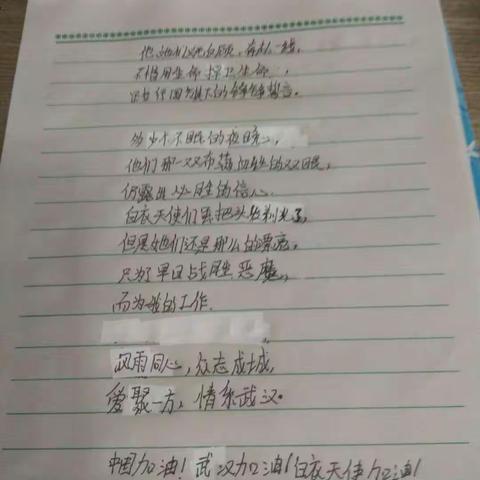 他她们义无反顾,奋战一线,
不惜用生命捍卫生命,
这如他国旗下的铮铮誓言。
多少个不眠的夜晚,
他们那一双双布满血丝的双眼,
仍露出必胜的信心.
白衣天使们再把头发剃光了,
但是她们还是那么的漂亮,
只为了早日战胜恶魔,
而为的工作.
风雨同心,众志成城,
爱聚一方,情系武汉。
中国加油!武汉加油!白衣天使加油!